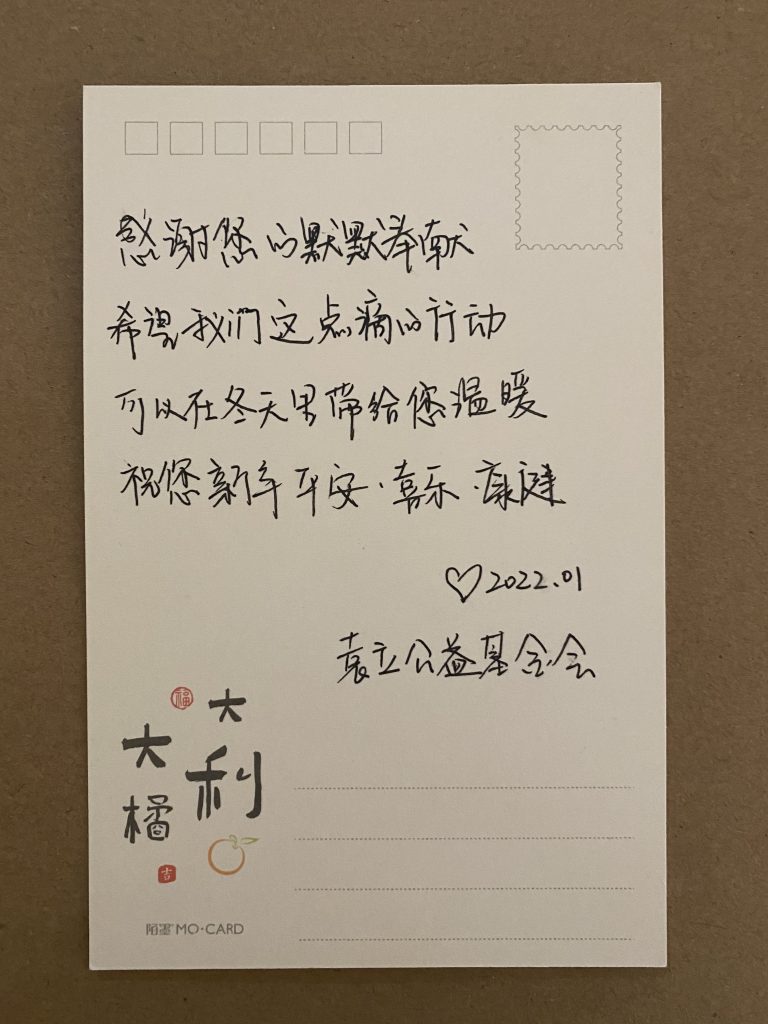 感谢您的默默奉献
希望我们这点滴的行动
可以在冬天里带给您温暖
祝您新年平安·喜乐·康健
♡2022.01
袁立公益基金会
福
大橘
大利
吉
陌墨 MO·CARD